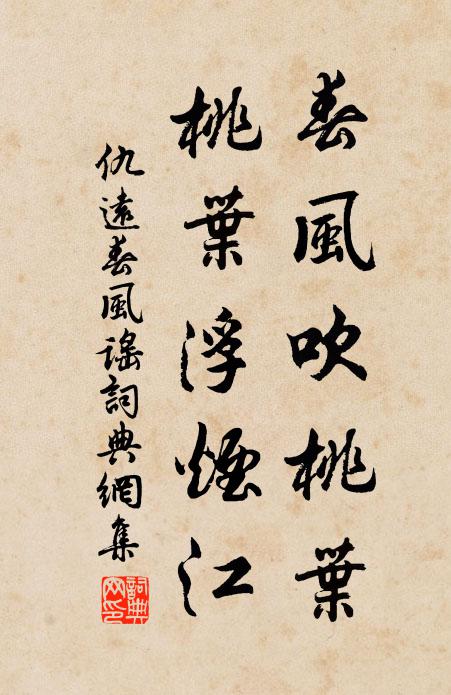 春風吹桃葉
桃葉浮煙江
仇遠春風謠詞典網集
詞典網印